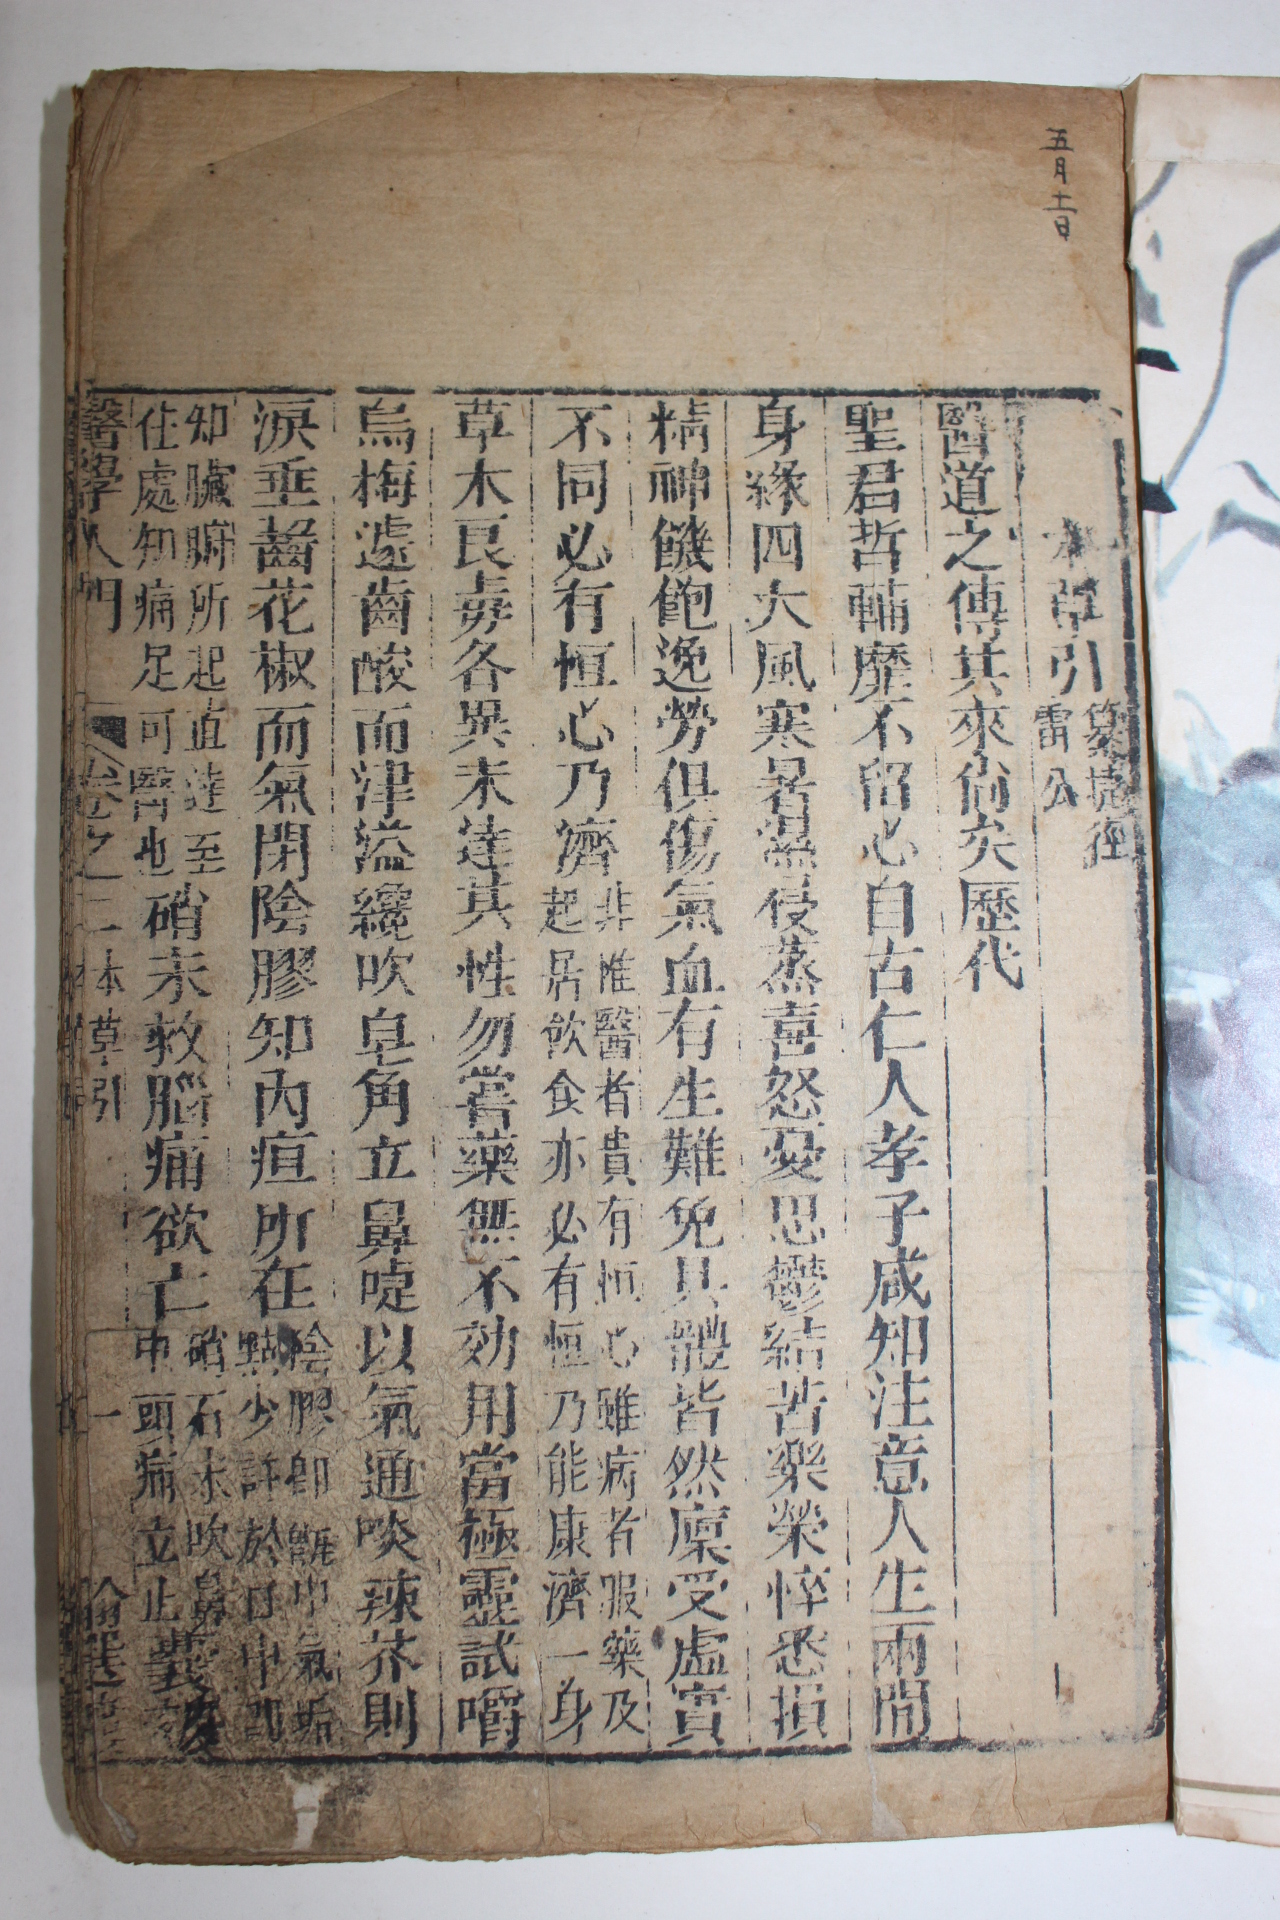 五月十一日
本草引
纂捷徑
雷公
醫道之傳其來尙矣歷代
聖君哲輔靡不留心自古仁人孝子咸知注意人生兩間
身緣四大風寒暑濕侵蒸喜怒憂思鬱結苦樂榮悴悉損
精神饑飽逸勞但傷氣血有生難免具體皆然稟受虛實
不同必有恒心乃濟
非惟醫者貴有恒心雖病者服藥及
起居飮食亦必有恒乃能康濟一身
草木良毒各異未達其性勿嘗藥無不効用當極靈試嚼
烏梅遽齒酸而津溢纔吹皂角立鼻嚏以氣通啖辣芥則
淚垂齧花椒而氣閉陰膠知內疸所在
陰膠卽甑中氣垢
點少許於口中卽
知臟腑所起直達至
住處知痛足可醫也
硝末救腦痛欲亡
硝石末吹鼻
中頭痛立止
醫學入門
卷之二
本草引
一